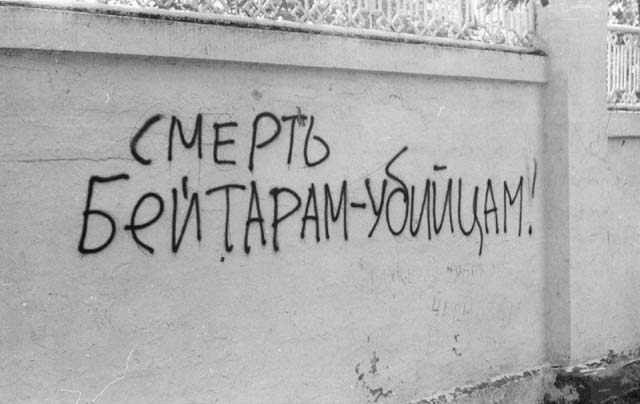 СМЕРТЬ
БЕЙТАРАМ-УБИЙЦАМ!